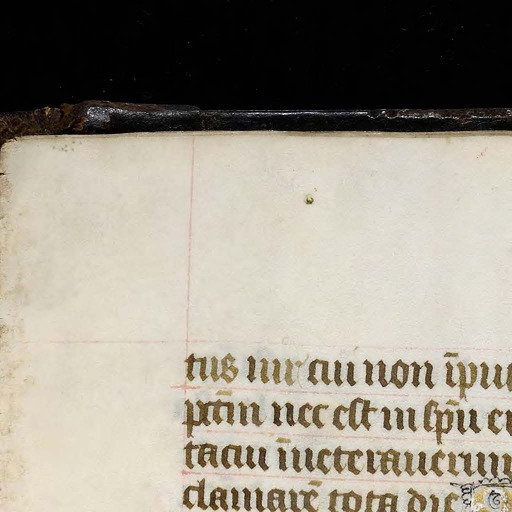 tus uir cui non īpu
pctm̄ nec est in sp̄u ei
tacui īueterauerun
clamarē tota die